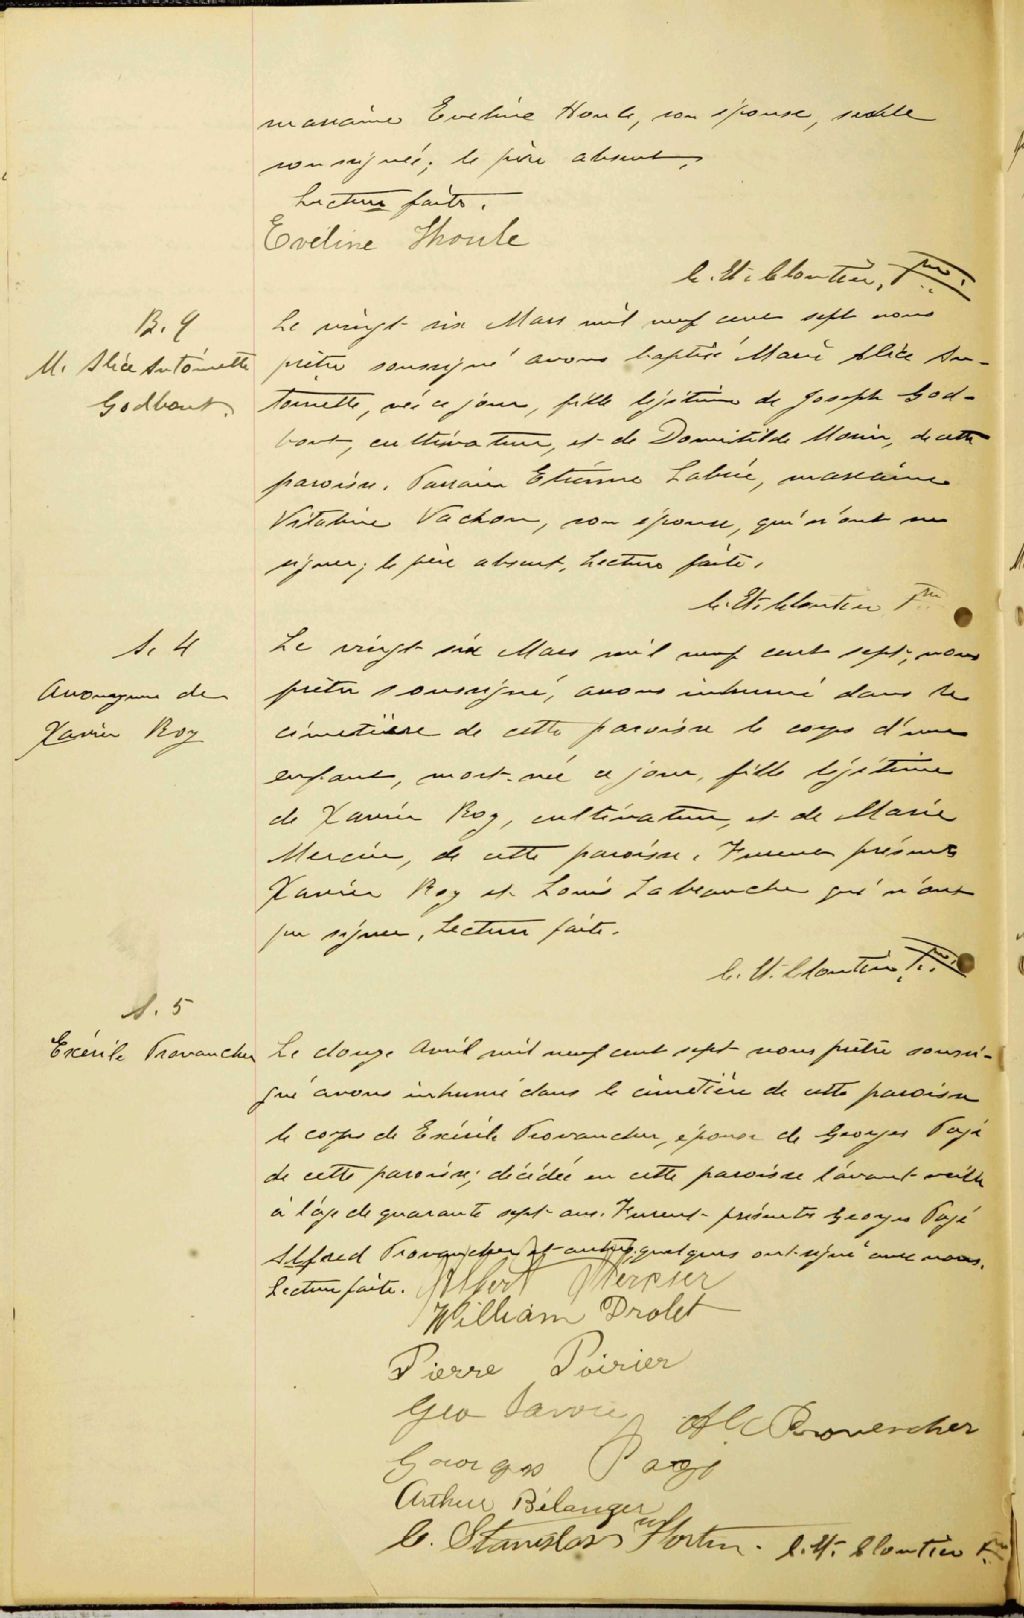 marraine Eveline Houle, son épouse, seule
soussignée; le père absent.
Lecture faite.
Eveline Houle
C. H. Cloutier, Ptre.
B. 9
M. Alice Antoinette
Godbout.
Le vingt six Mars mil neuf cent sept nous
prêtre soussigné avons baptisé Marie Alice An-
toinette, née ce jour, fille légitime de Joseph God-
bout, cultivateur, et de Domitilde Morin, de cette
paroisse. Parrain Etienne Labrie, marraine
Vitaline Vachon, son épouse, qui n'ont su
signer; le père absent. Lecture faite.
C. H. Cloutier Ptre
S. 4
Anonyme de
Xavier Roy
Le vingt six Mars mil neuf cent sept, nous
prêtre soussigné, avons inhumé dans le
cimetière de cette paroisse le corps d'une
enfant, mort-née ce jour, fille légitime
de Xavier Roy, cultivateur, et de Marie
Mercier, de cette paroisse. Furent présents
Xavier Roy et Louis Labranche qui n'ont
pu signer. Lecture faite.
C. H. Cloutier, Ptre.
S. 5
Exérile Provancher
Le douze Avril mil neuf cent sept nous prêtre soussi-
gné avons inhumé dans le cimetière de cette paroisse
le corps de Exérile Provancher, épouse de Georges Pagé
de cette paroisse; décédée en cette paroisse l'avant-veille
à l'âge de quarante sept ans. Furent présents Georges Pagé
Alfred Provancher et autres, quelques ont signé avec nous.
Lecture faite. Albert Mercier
William Drolet
Pierre Poirier
Geo Savoie
Alf Provencher
Georges Pagé
Arthur Bélanger
C. Stanislas Fortin.
C. H. Cloutier Ptre